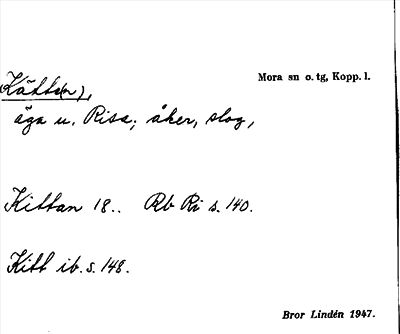 Mora sn o. tg, Kopp. l.
Kätte(n),
äga u. Risa; åker, slog,
Kittan 18.. Rb Ri s. 140.
Kitt ib. s. 148.
Bror Lindén 1947.